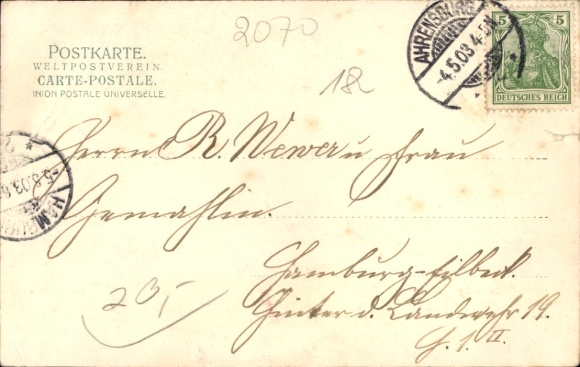 2070
POSTKARTE.
WELTPOSTVEREIN.
CARTE-POSTALE.
UNION POSTALE UNIVERSELLE.
18
AHRENSBURG
4.5.03.4-5N
5 5
DEUTSCHES REICH
Herrn R. Wewer u Frau
Gemahlin.
Hamburg-Eilbeck.
Hinter d. Landwehr 19.
H. 1. II.
20,-
5.5.03.
HAMBURG